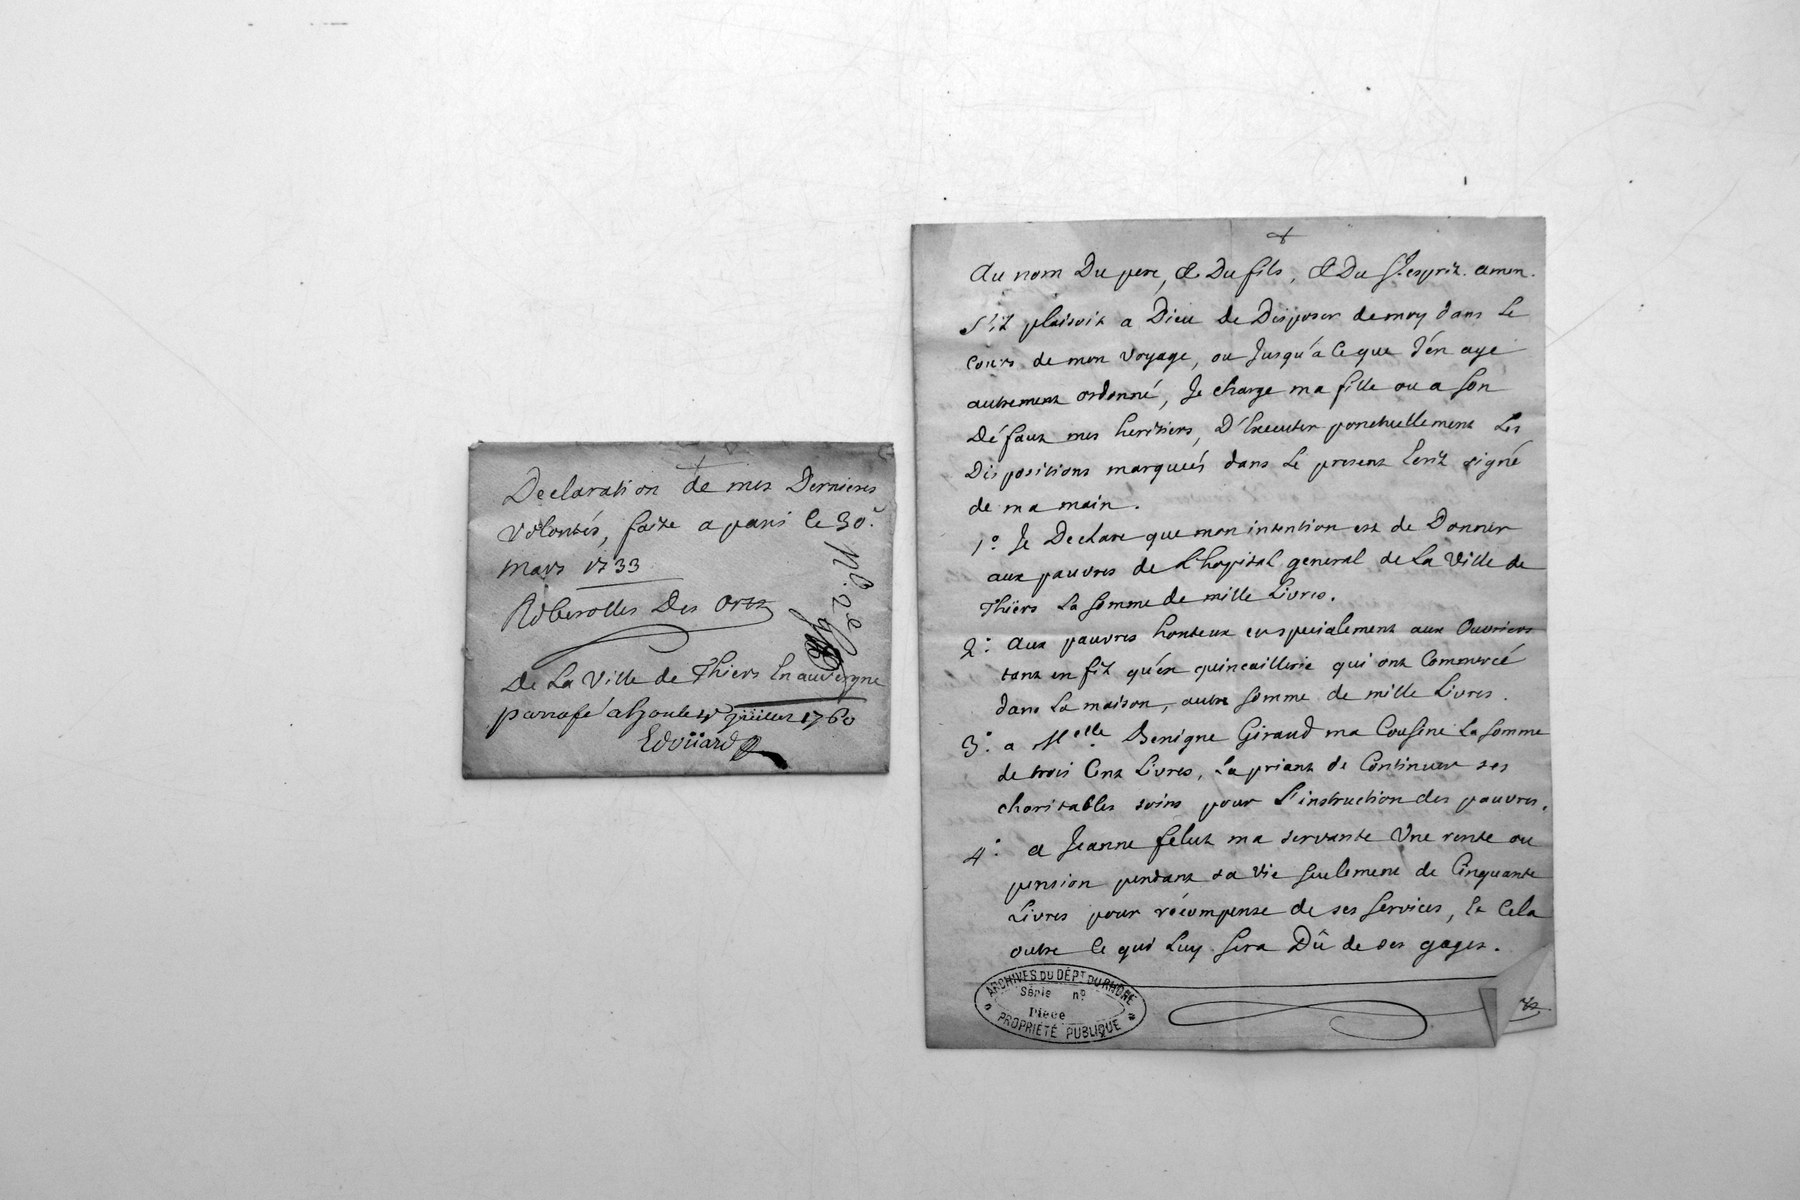 Declaration de mes Dernieres
volontés, faite a paris le 30e.
mars 1733
Riberolles Des Orts
De La Ville de Thiers En auvergne
parafé juillet 1760
Edoüard
N.o 2e
Au nom Du pere, & Du fils, & Du St. esprit. amen.
s'il plaisoit a Dieu de Disposer de moy dans Le
Cours de mon voyage, ou Jusqu'a Ce que J'en aye
autrement ordonné, Je charge ma fille ou a son
Défaut mes heritiers, D'Executer ponctuellement Les
Dispositions marqueés dans Le present Ecrit signé
de ma main.
1.o Je Declare que mon intention est de Donner
aux pauvres de L'hopital general de La Ville de
Thiers La somme de mille Livres.
2.o Aux pauvres honteux et specialement aux Ouvriers
tant en fil qu'en quincaillerie qui ont Commercé
dans La maison, autre somme de mille Livres.
3.o a Melle. Benigne Giraud ma Cousine La somme
de trois Cent Livres, La priant de Continuer ses
charitables soins pour L'instruction des pauvres.
4.o a Jeanne felut ma servante Une rente ou
pension pendant sa Vie seulement de Cinquante
Livres pour récompense de ses services, Et Cela
outre Ce qui Luy sera Dû de ses gages.
ARCHIVES DU DÉPT DU RHÔNE
Série no
Pièce
PROPRIÉTÉ PUBLIQUE